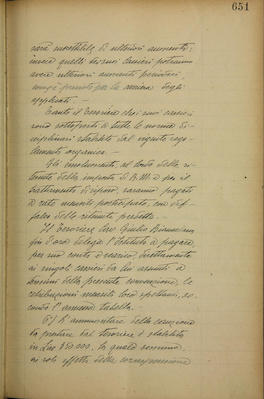 651
sarà suscettibile di ulteriori aumenti;
invece quelle dei suoi cassieri potranno
avere ulteriori aumenti periodici,
come previsto per la massa degli
applicati. —
Tanto il Tesoriere che i suoi cassieri
sono sottoposti a tutte le norme di-
sciplinari stabilite dal vigente rego-
lamento organico. —
Gli emolumenti, al lordo della ri-
tenuta della imposta di R.M. e per il
trattamento di riposo, saranno pagati
a rate mensili posticipate, con dif-
falco delle ritenute predette. —
Il Tesoriere Sig. Giulio
fin d'ora delega l'Istituto a pagare
per suo conto e carico, direttamente
ai singoli cassieri da lui assunti a
termini della presente convenzione, le
retribuzioni mensili loro spettanti, se-
condo l'annessa tabella.
6) L'ammontare della cauzione
da prestare dal tesoriere è stabilito
in Lire 350.000, la quale somma,
ai soli effetti della corresponsione